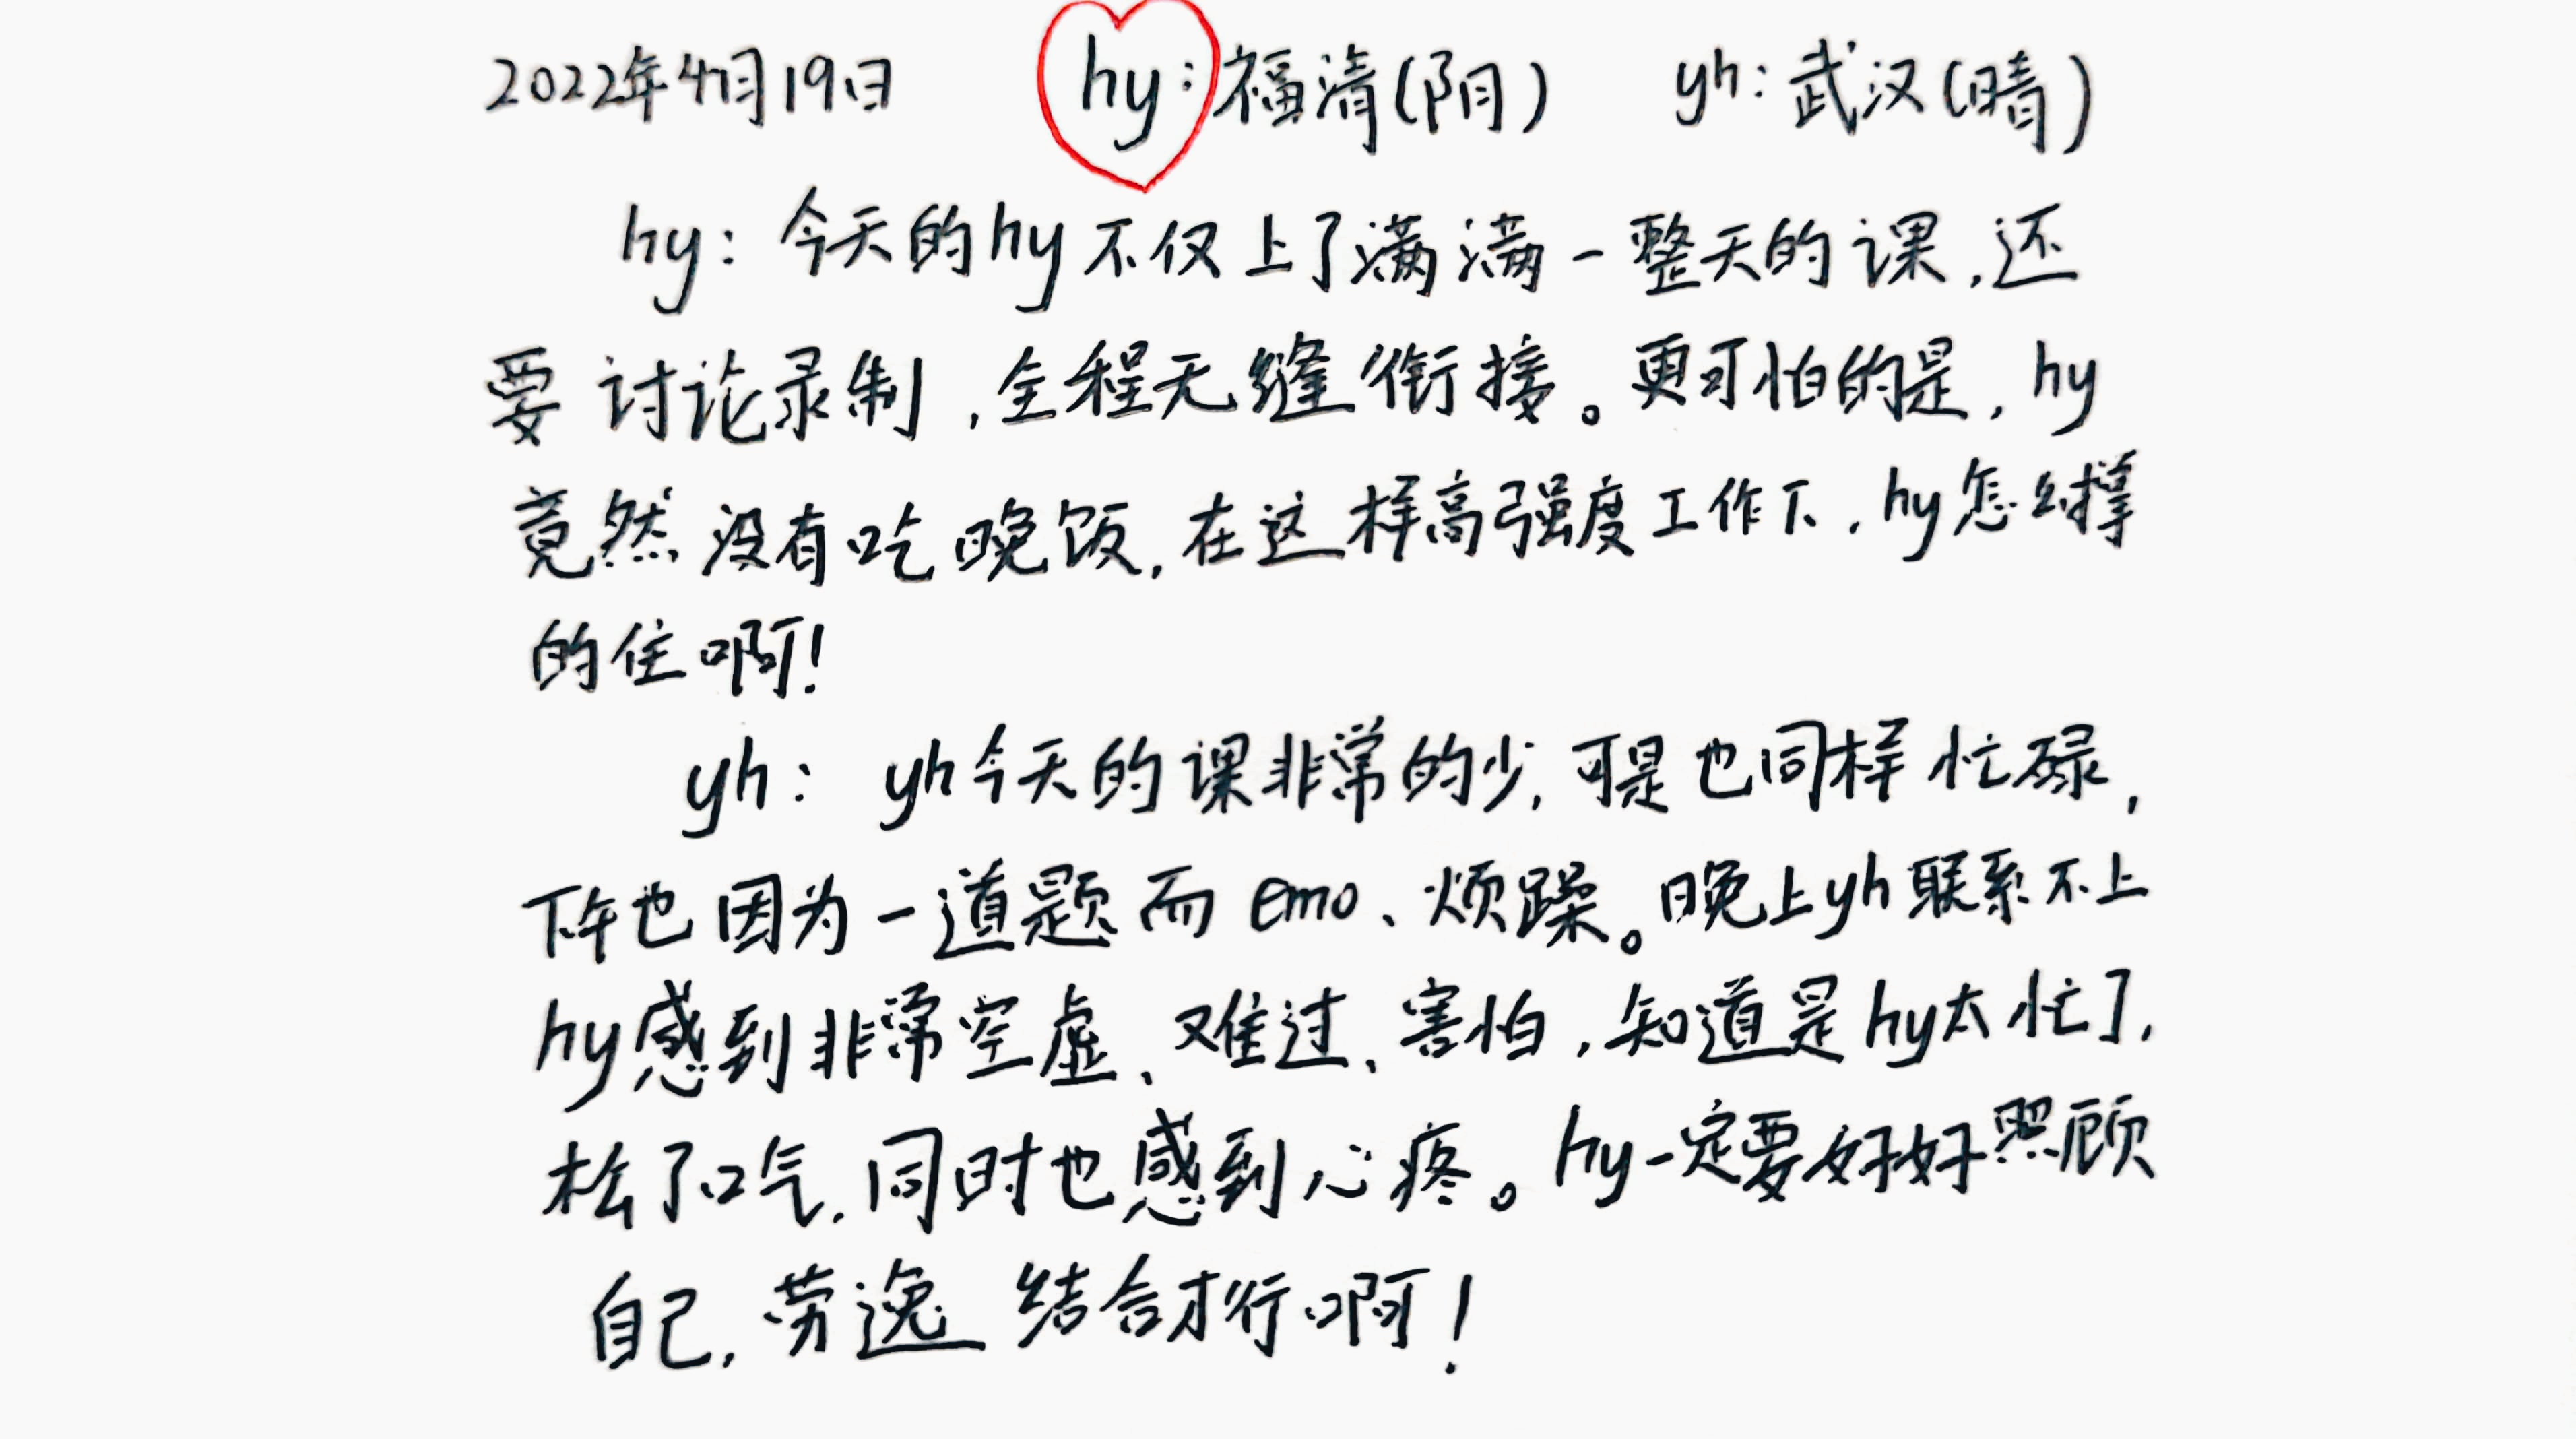 2022年4月19日 hy:福清(阴) yh:武汉(晴)
hy:今天的hy不仅上了满满一整天的课,还
要讨论录制,全程无缝衔接。更可怕的是,hy
竟然没有吃晚饭,在这样高强度工作下,hy怎么撑
的住啊!
yh: yh今天的课非常的少,可是也同样忙碌,
下午也因为一道题而emo、烦躁。晚上yh联系不上
hy感到非常空虚、难过、害怕,知道是hy太忙了,
松了口气,同时也感到心疼。hy一定要好好照顾
自己,劳逸结合才行啊!